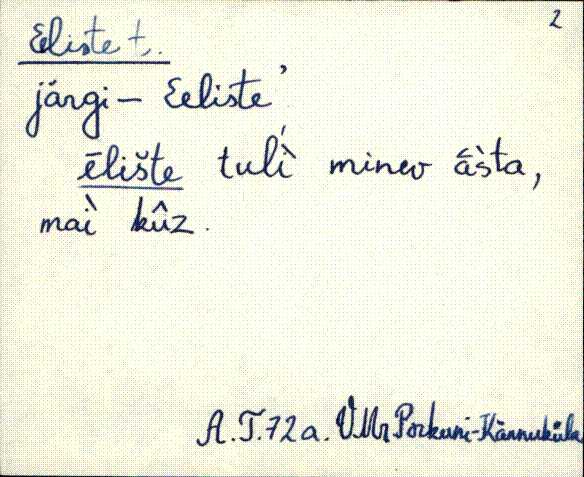 2
Eeliste t.
järgi – Eeliste'
ēlište tulì minev āsta,
mai kûz.
A. T. 72 a. V.Mr Porkuni-Kännuküla